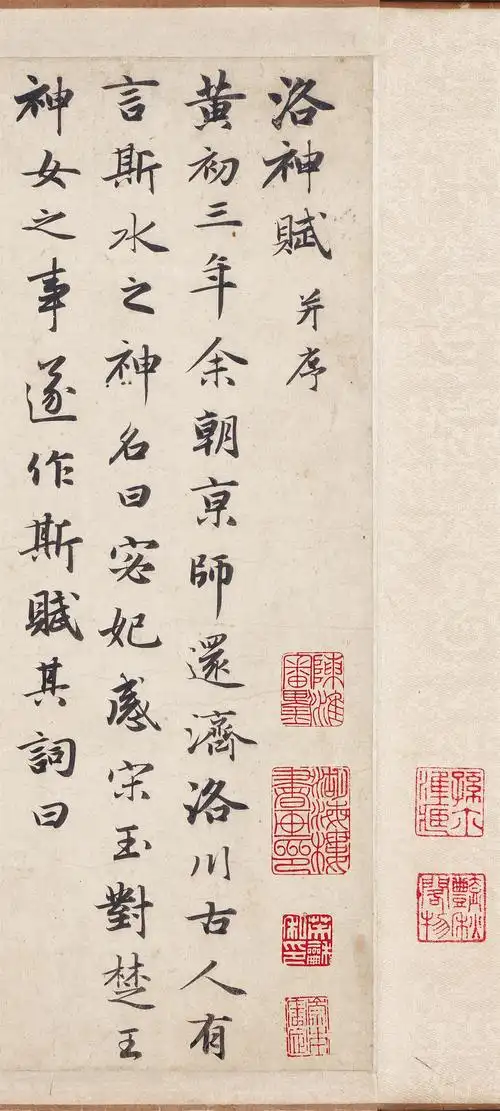 洛神賦 并序
黃初三年余朝京師還濟洛川古人有
言斯水之神名曰宓妃感宋玉對楚王
神女之事遂作斯賦其詞曰
陳淮審墨
豔秋閣物